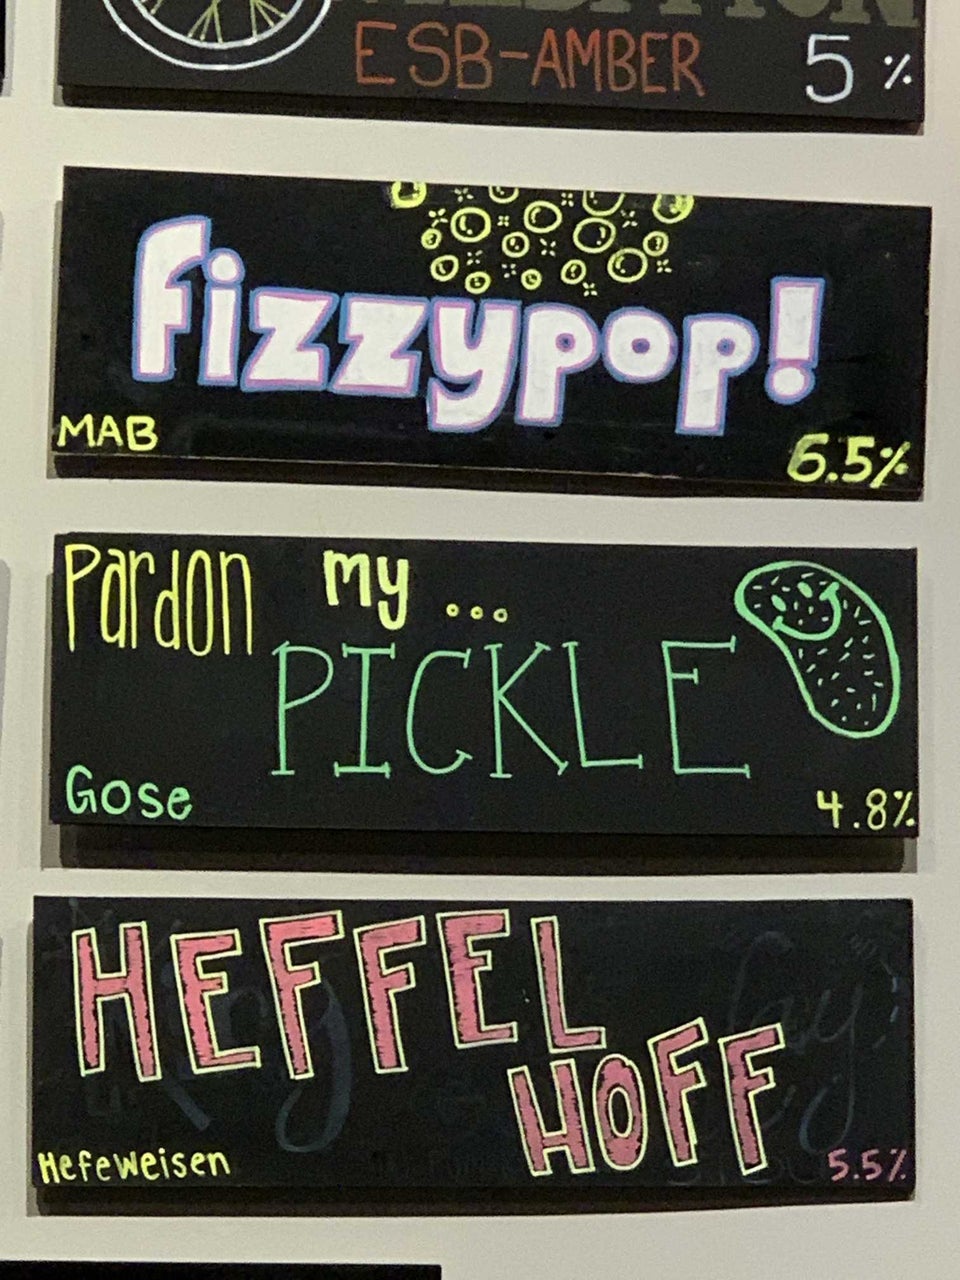 ESB-AMBER 5%
fizzypop!
MAB 6.5%
Pardon my ...
PICKLE
Gose 4.8%
HEFFEL
HOFF
Hefeweisen 5.5%